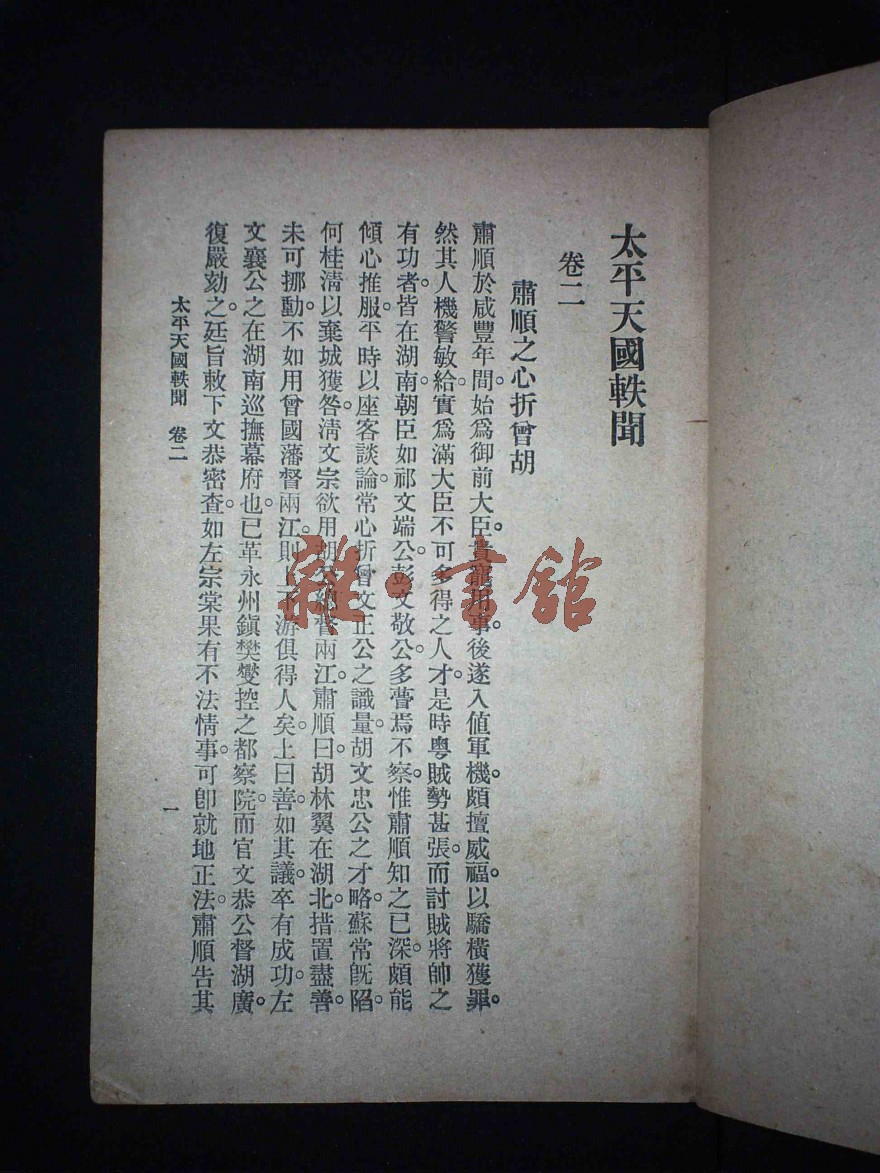 太平天國軼聞
卷二
肅順之心折曾胡
肅順於咸豐年間。始爲御前大臣。貴寵用事。後遂入値軍機。頗擅威福。以驕橫獲罪。
然其人機警敏給。實爲滿大臣不可多得之人才。是時粵賊勢甚張。而討賊將帥之
有功者。皆在湖南。朝臣如祁文端公。彭文敬公。多瞢焉不察。惟肅順知之已深。頗能
傾心推服。平時以座客談論。常心折曾文正公之識量。胡文忠公之才略。蘇常旣陷。
何桂淸以棄城獲咎。淸文宗欲用胡公總督兩江。肅順曰。胡林翼在湖北。措置盡善。
未可挪動。不如用曾國藩督兩江。則上下游俱得人矣。上曰善。如其議。卒有成功。左
文襄公之在湖南巡撫幕府也。已革永州鎭樊燮控之都察院。而官文恭公督湖廣。
復嚴劾之。廷旨敕下文恭密查。如左宗棠果有不法情事。可卽就地正法。肅順告其
太平天國軼聞 卷二
一
雜·書館